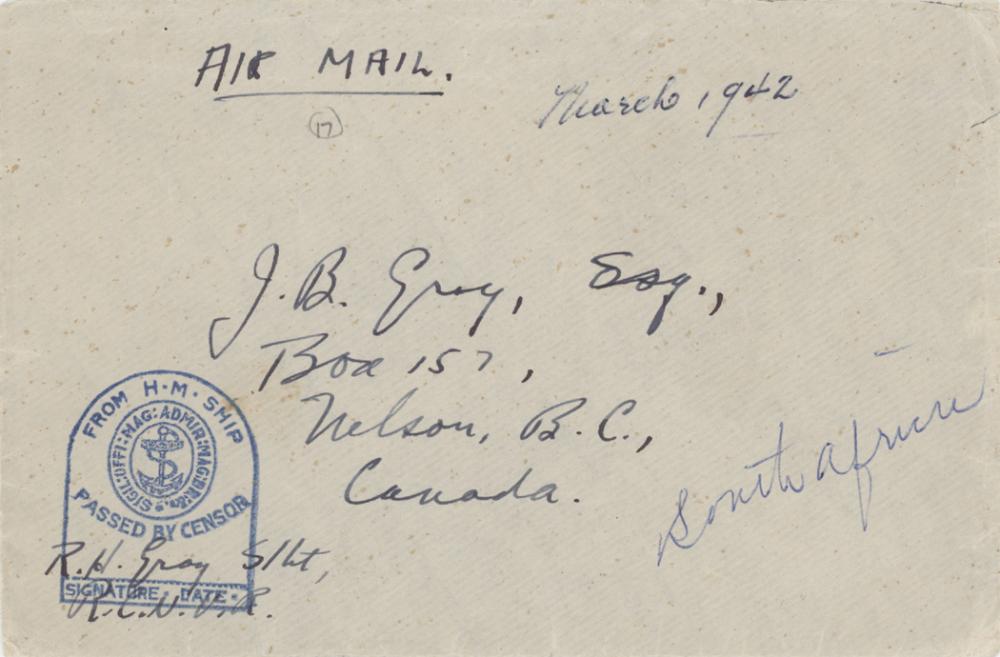 AIR MAIL.
March 1942
17
J. B. Gray, Esq.,
Box 157,
Nelson, B.C.,
Canada.
South Africa
FROM H·M·SHIP
SIGIL:OFFI:MAG:ADMIR:MAG:BR:&c.
PASSED BY CENSOR
R.H. Gray S/Lt,
SIGNATURE - DATE -
R.C.N.V.R.